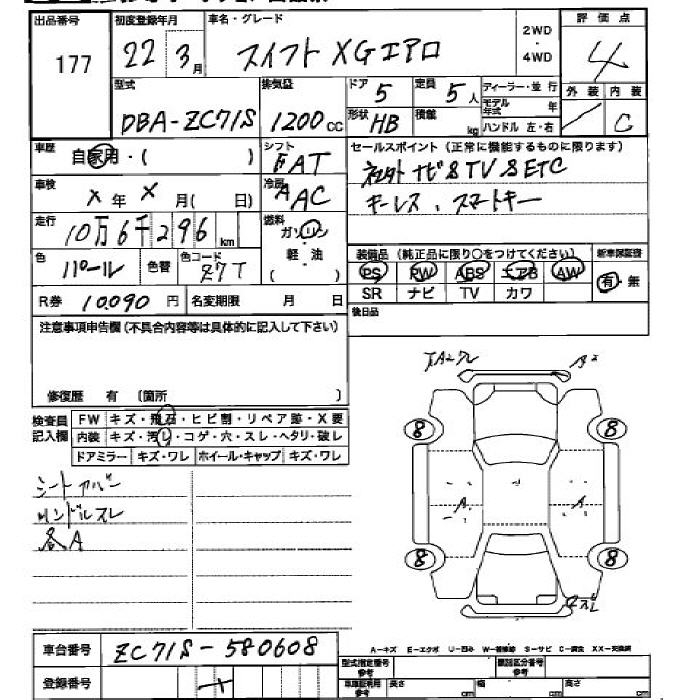 出品番号 初度登録年月 車名・グレード 2WD・4WD 評価点
177 22年 3月 スイフト XGエアロ 4
型式 排気量 ドア 定員 ディーラー・並行 外装 内装
DBA-ZC71S 1200cc 5 5人 モデル年式 年
形状 HB 積載 kg ハンドル 左・右 C
車歴 自家用・( ) シフト FAT セールスポイント (正常に機能するものに限ります)
車検 X年 X月( 日) 冷房 AAC 社外 ナビ&TV&ETC
走行 10万6千296km 燃料 ガソリン・軽油 ( ) キーレス、スマートキー
色 パール 色替 色コード Z7T
装備品 (純正品に限り○をつけてください) 新車保証書
PS PW ABS エアB AW 有・無
R券 10,090円 名変期限 月 日 SR ナビ TV カワ
注意事項申告欄 (不具合内容等は具体的に記入して下さい) 後日品
修復歴 有 〔箇所 〕
検査員記入欄 FW キズ・飛石・ヒビ割・リペア跡・X要
内装 キズ・汚レ・コゲ・穴・スレ・ヘタリ・破レ
ドアミラー キズ・ワレ ホイール・キャップ キズ・ワレ
8 8
シート
ハンドルスレ
各A
A A
8 8
車台番号 ZC71S-580608
A-キズ E-エクボ U-凹み W-補修跡 S-サビ C-腐食 XX-交換済
登録番号
型式指定番号 参考 類別区分番号 参考
車庫証明用 参考 長さ cm 幅 cm 高さ cm